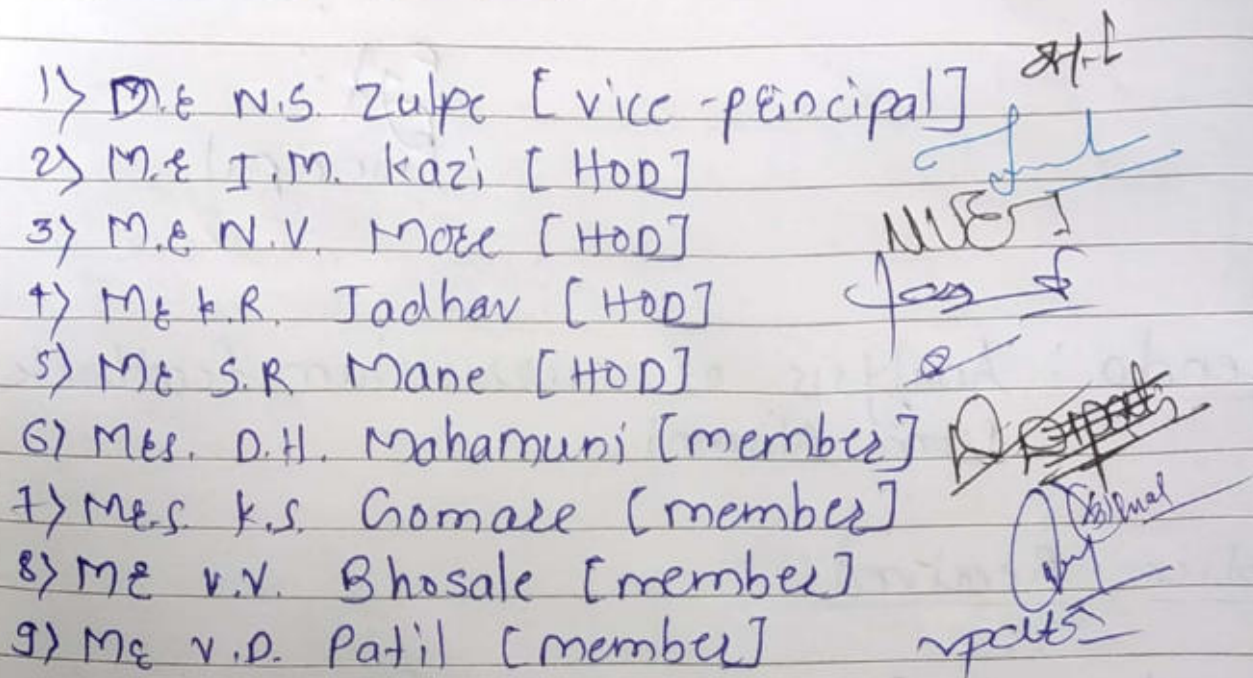 1) Mr N.S. Zulpe [vice-principal]
2) M.r I.M. Kazi [HOD]
3) M.r N.V. More [HOD]
4) Mr k.R. Jadhav [HOD]
5) Mr S.R Mane [HOD]
6) Mrs. D.H. Mahamuni [member]
7) Mr.s. k.s. Gomare [member]
8) Mr v.v. Bhosale [member]
9) Mr v.D. Patil [member]